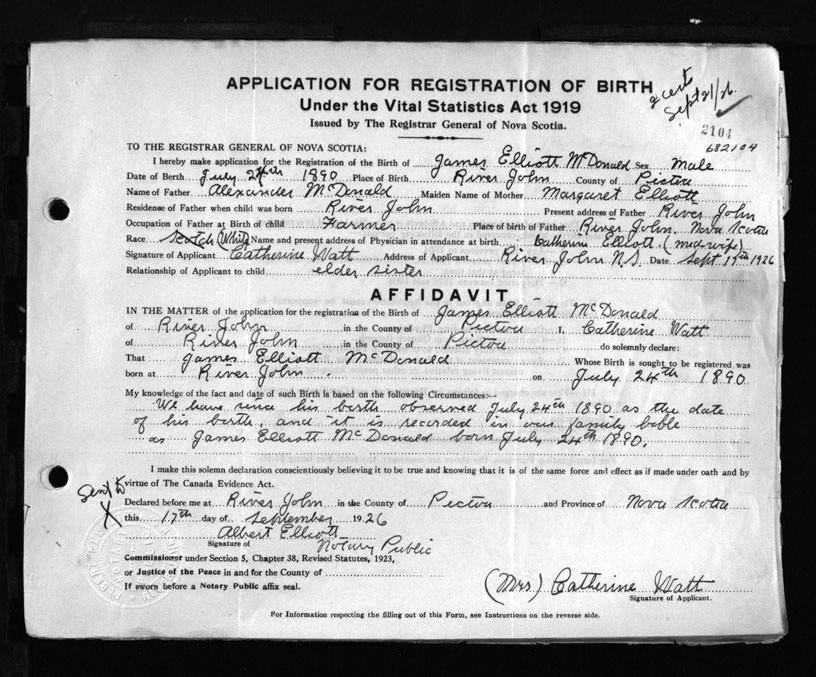 APPLICATION FOR REGISTRATION OF BIRTH
2 certs
Sept 21/26
Under the Vital Statistics Act 1919
Issued by The Registrar General of Nova Scotia.
2104
682104
TO THE REGISTRAR GENERAL OF NOVA SCOTIA:
I hereby make application for the Registration of the Birth of James Elliott McDonald Sex Male
Date of Birth July 24th 1890 Place of Birth River John County of Pictou
Name of Father Alexander McDonald Maiden Name of Mother Margaret Elliott
Residense of Father when child was born River John Present address of Father River John
Occupation of Father at Birth of child Farmer Place of birth of Father River John, Nova Scotia
Race Scotch (White) Name and present address of Physician in attendance at birth Catherine Elliott (mid-wife)
Signature of Applicant Catherine Watt Address of Applicant River John N.S. Date Sept 17th 1926
Relationship of Applicant to child elder sister
AFFIDAVIT
IN THE MATTER of the application for the registration of the Birth of James Elliott McDonald
of River John in the County of Pictou I, Catherine Watt
of River John in the County of Pictou do solemnly declare:
That James Elliott McDonald Whose Birth is sought to be registered was
born at River John on July 24th 1890
My knowledge of the fact and date of such Birth is based on the following Circumstances:—
We have since his birth observed July 24th 1890 as the date
of his birth, and it is recorded in our family bible
as James Elliott McDonald born July 24th 1890.
I make this solemn declaration conscientiously believing it to be true and knowing that it is of the same force and effect as if made under oath and by
virtue of The Canada Evidence Act.
Sent to
X
Declared before me at River John in the County of Pictou and Province of Nova Scotia
this 17th day of September 1926
Albert Elliott
Signature of Notary Public
Commissioner under Section 5, Chapter 38, Revised Statutes, 1923,
or Justice of the Peace in and for the County of
If sworn before a Notary Public affix seal.
(Mrs) Catherine Watt
Signature of Applicant.
For Information respecting the filling out of this Form, see Instructions on the reverse side.